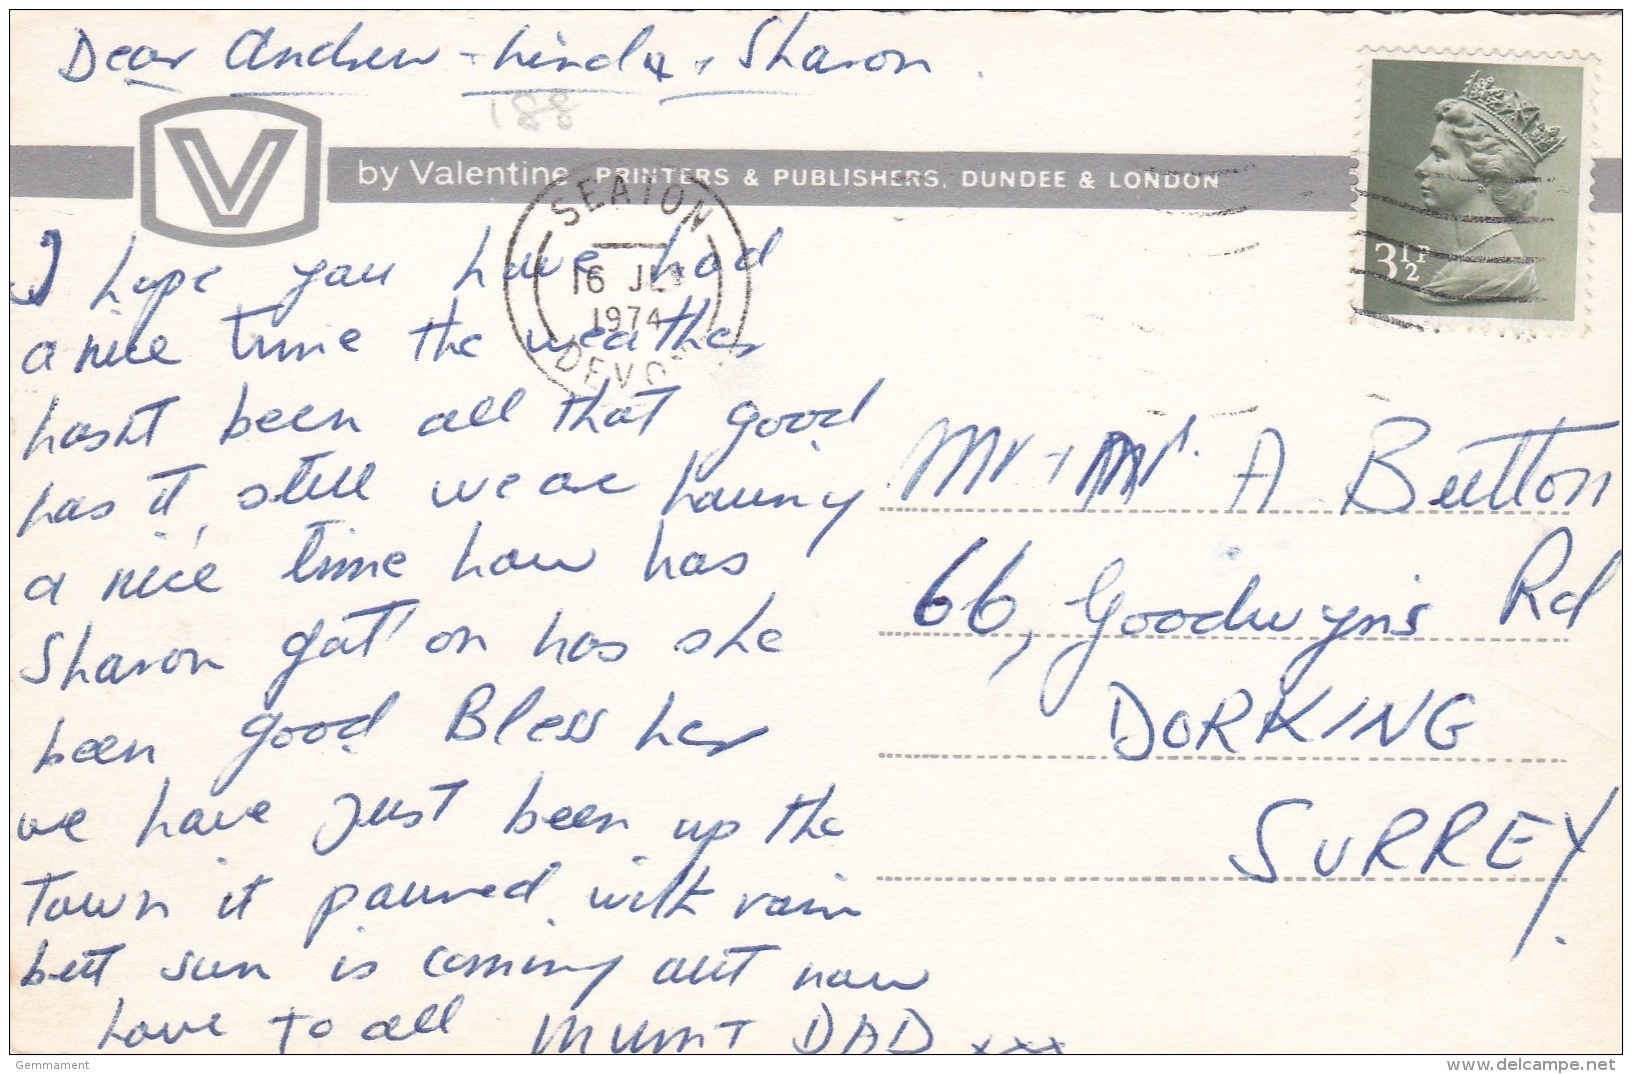 Dear Andrew + Linda + Sharon.
188
V
by Valentine PRINTERS & PUBLISHERS, DUNDEE & LONDON
SEATON
16 JLY
1974
DEVON
3½P
I hope you have had
a nice time the weather
hasnt been all that good
has it, still we are having
a nice time how has
Sharon got on has she
been good Bless her
we have just been up the
Town it poured with rain
but sun is coming out now
Love to all MUM + DAD xxx
Mr + Mrs. A Button
66, Goodwyns Rd
DORKING
SURREY.
Gemmament
www.delcampe.net